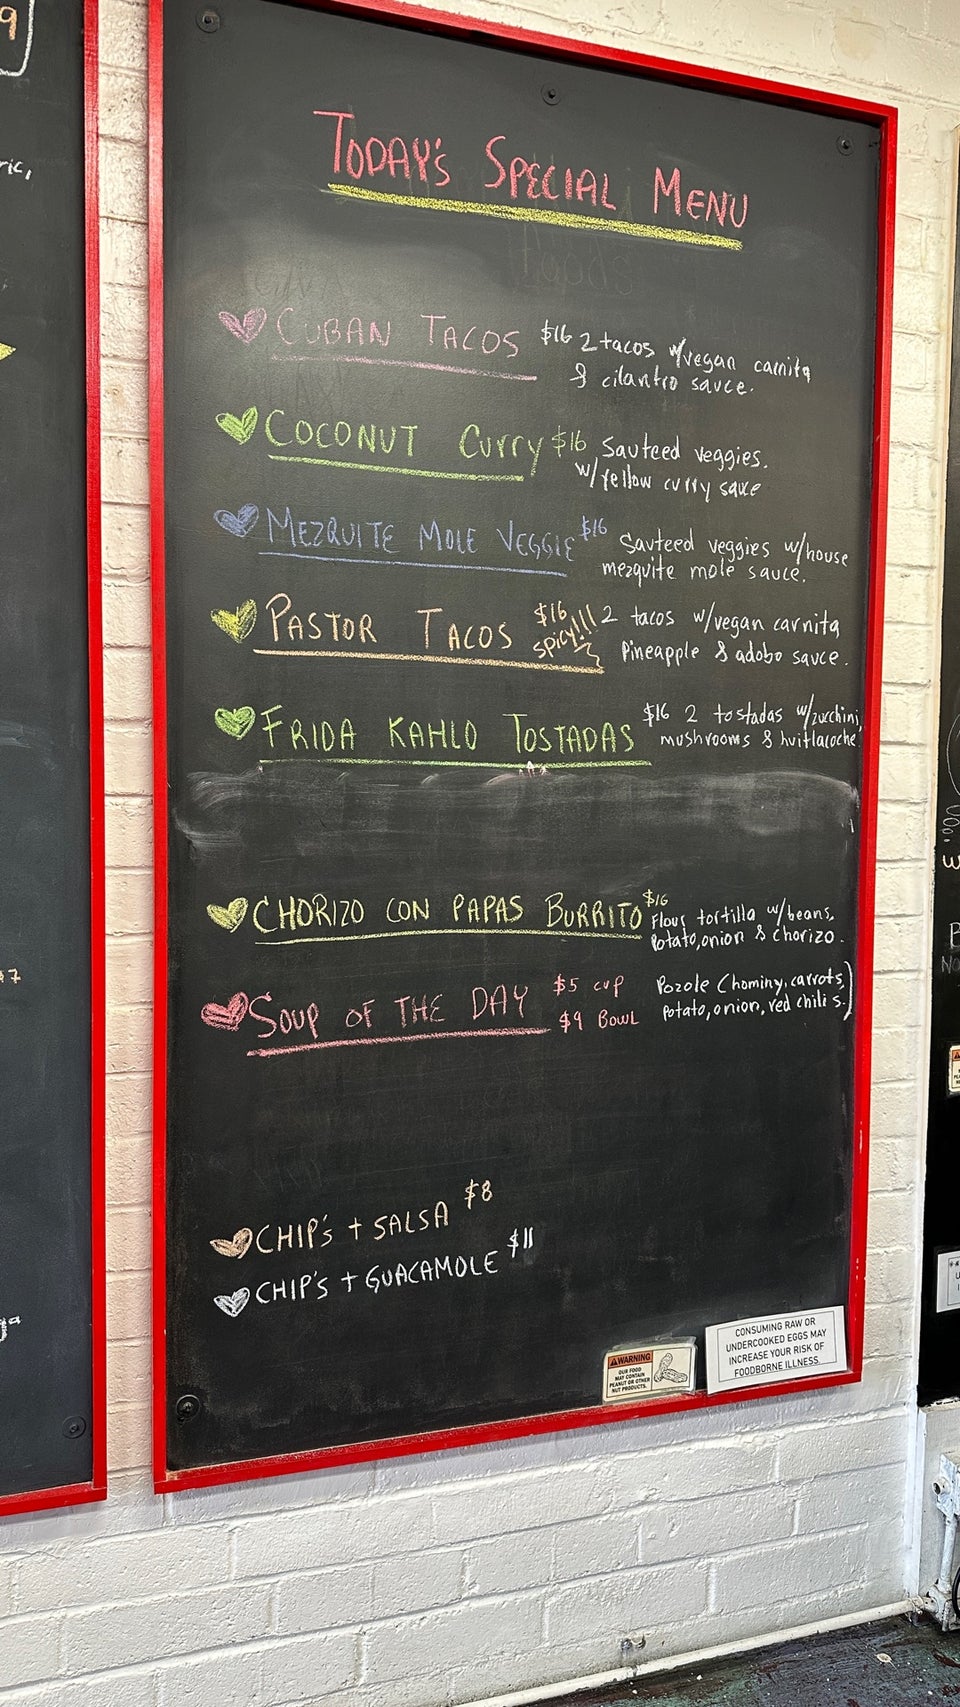 TODAY'S SPECIAL MENU
CUBAN TACOS $16 2 tacos w/vegan carnita
& cilantro sauce.
COCONUT CURRY $16 Sauteed veggies.
w/Yellow curry sauce
MEZQUITE MOLE VEGGIE $16 Sauteed veggies w/house
mezquite mole sauce.
PASTOR TACOS $16 2 tacos w/vegan carnita
SPICY!!! Pineapple & adobo sauce.
FRIDA KAHLO TOSTADAS $16 2 tostadas w/zucchini,
mushrooms & huitlacoche
CHORIZO CON PAPAS BURRITO $16
Flour tortilla w/beans,
Potato, onion & chorizo.
SOUP OF THE DAY $5 CUP Pozole (hominy, carrots,
$9 BOWL Potato, onion, red chilis)
CHIP'S + SALSA $8
CHIP'S + GUACAMOLE $11
WARNING
OUR FOOD
MAY CONTAIN
PEANUT OR OTHER
NUT PRODUCTS.
CONSUMING RAW OR
UNDERCOOKED EGGS MAY
INCREASE YOUR RISK OF
FOODBORNE ILLNESS.
9
ric,
$7